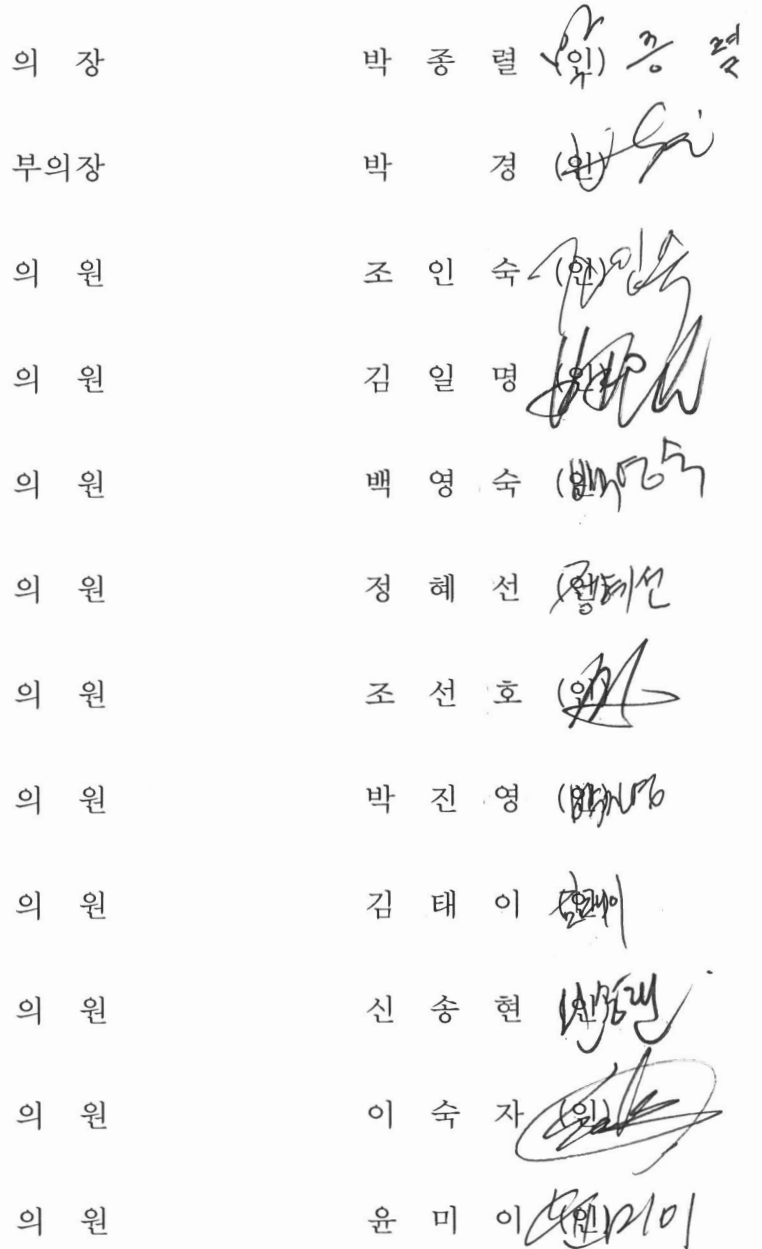 의 장 박 종 렬 (인) 종 렬
부의장 박 경 (인)
의 원 조 인 숙 (인) 조인숙
의 원 김 일 명 (인)
의 원 백 영 숙 (인) 백영숙
의 원 정 혜 선 (인) 정혜선
의 원 조 선 호 (인)
의 원 박 진 영 (인) 박진영
의 원 김 태 이 (인) 김태이
의 원 신 송 현 (인)
의 원 이 숙 자 (인)
의 원 윤 미 이 (인) 윤미이